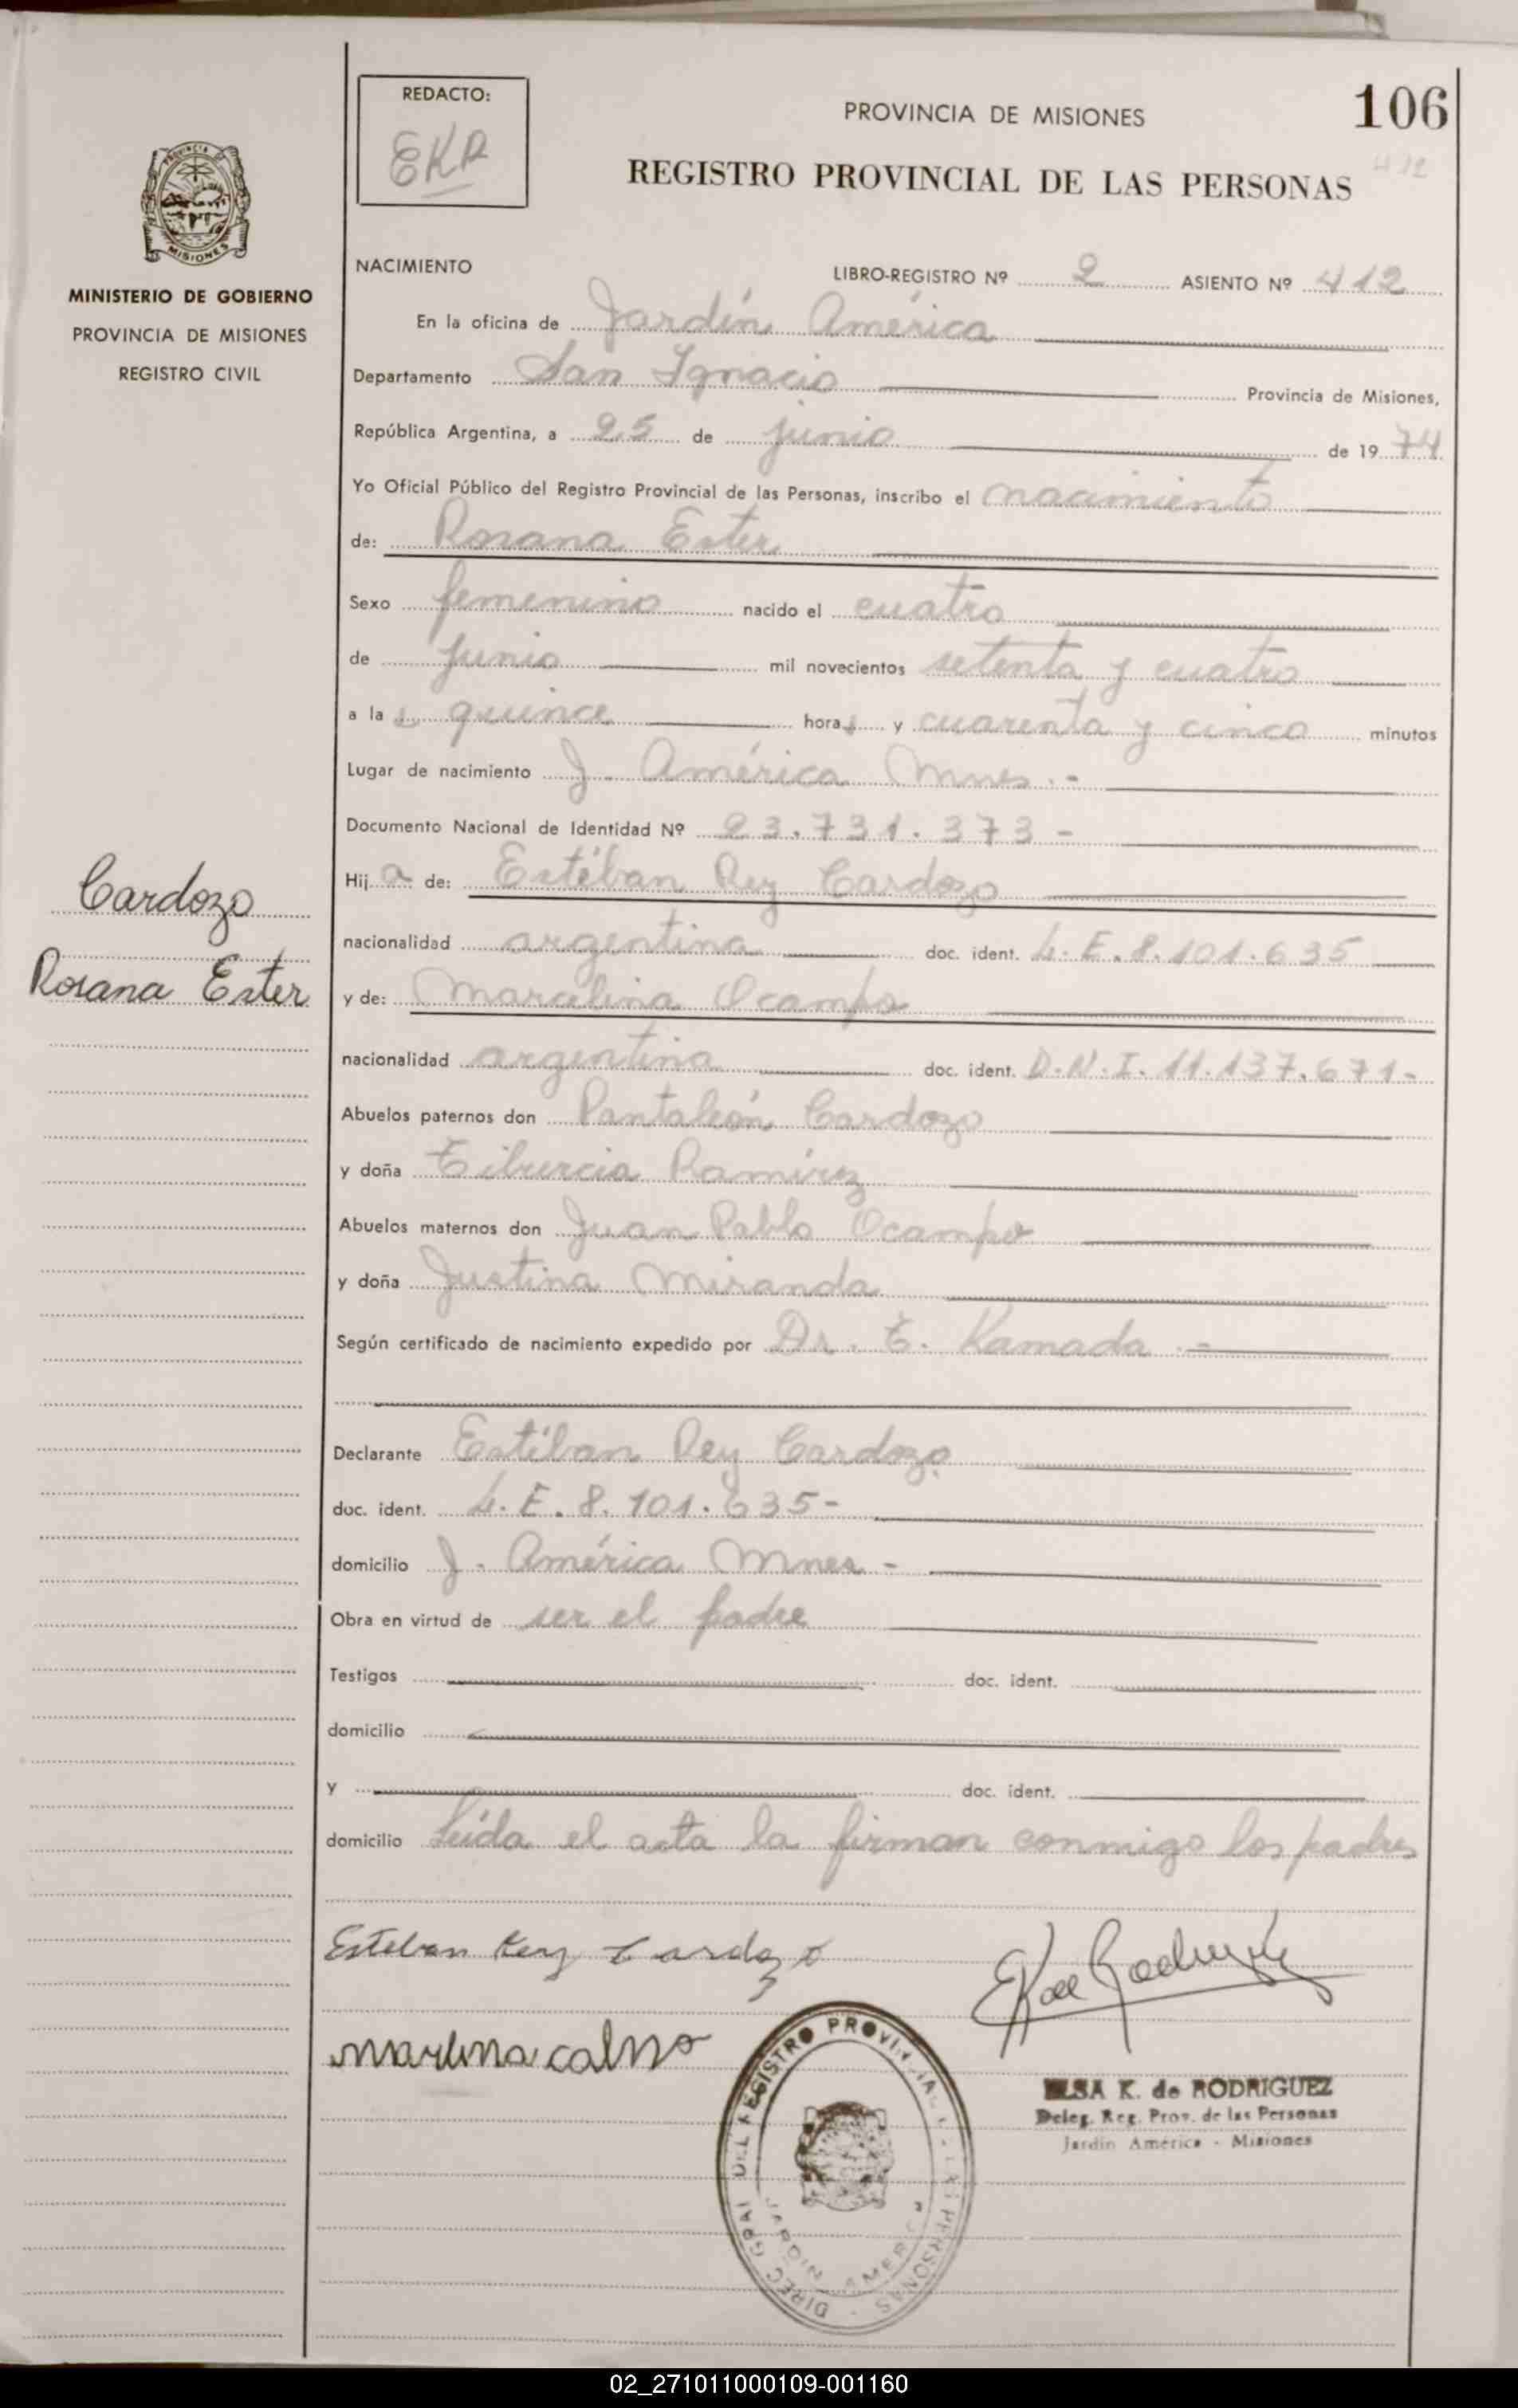 REDACTO:
EKR
PROVINCIA DE MISIONES
106
412
REGISTRO PROVINCIAL DE LAS PERSONAS
MISIONES
MINISTERIO DE GOBIERNO
PROVINCIA DE MISIONES
REGISTRO CIVIL
NACIMIENTO
LIBRO-REGISTRO Nº 2 ASIENTO Nº 412
En la oficina de Jardín América
Departamento San Ignacio Provincia de Misiones,
República Argentina, a 25 de junio de 1974
Yo Oficial Público del Registro Provincial de las Personas, inscribo el nacimiento
de: Rosana Ester
Sexo femenino nacido el cuatro
de junio mil novecientos setenta y cuatro
a las quince horas y cuarenta y cinco minutos
Lugar de nacimiento J. América Mnes.-
Documento Nacional de Identidad Nº 23.731.373-
Cardozo
Rosana Ester
Hija de: Estéban Rey Cardozo
nacionalidad argentina doc. ident. L.E.8.101.635
y de: Marcelina Ocampo
nacionalidad argentina doc. ident. D.N.I. 11.137.671-
Abuelos paternos don Pantaleón Cardozo
y doña Tiburcia Ramírez
Abuelos maternos don Juan Pablo Ocampo
y doña Justina Miranda
Según certificado de nacimiento expedido por Dr. T. Kamada.-
Declarante Estéban Rey Cardozo
doc. ident. L.E.8.101.635-
domicilio J. América Mnes-
Obra en virtud de ser el padre
Testigos doc. ident.
domicilio
y doc. ident.
domicilio Leída el acta la firman conmigo los padres
Esteban Rey Cardozo
ELSA K. de RODRIGUEZ
Deleg. Reg. Prov. de las Personas
Jardín América - Misiones
DIREC. GRAL DEL REGISTRO PROVINCIAL DE LAS PERSONAS -
JARDIN AMERICA
02_271011000109-001160